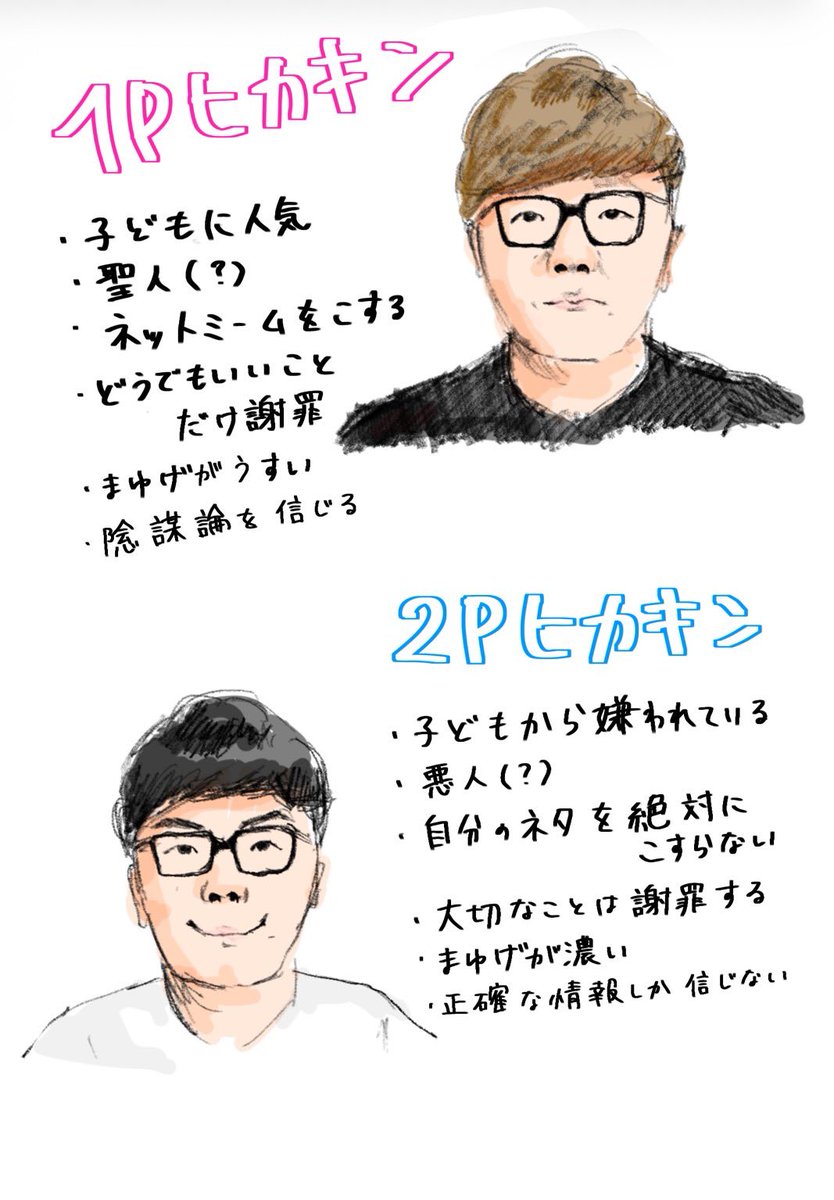 1Pヒカキン
・子どもに人気
・聖人(?)
・ネットミームをこする
・どうでもいいこと
だけ謝罪
・まゆげがうすい
・陰謀論を信じる
2Pヒカキン
・子どもから嫌われている
・悪人(?)
・自分のネタを絶対に
こすらない
・大切なことは謝罪する
・まゆげが濃い
・正確な情報しか信じない